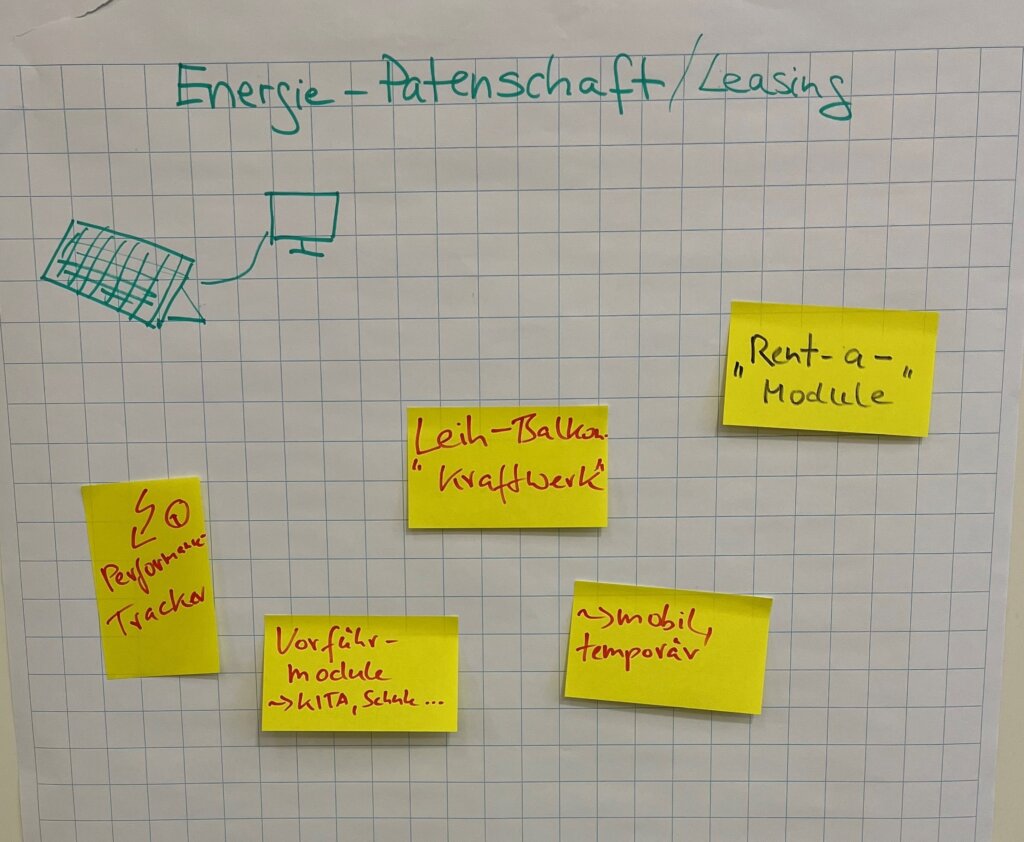 Energie-Patenschaft/Leasing
"Rent-a-"
Module
Leih-Balkon-
"Kraftwerk"
Performance-
Tracker
Vorführ-
module
~>KITA, Schule...
~>mobil,
temporär